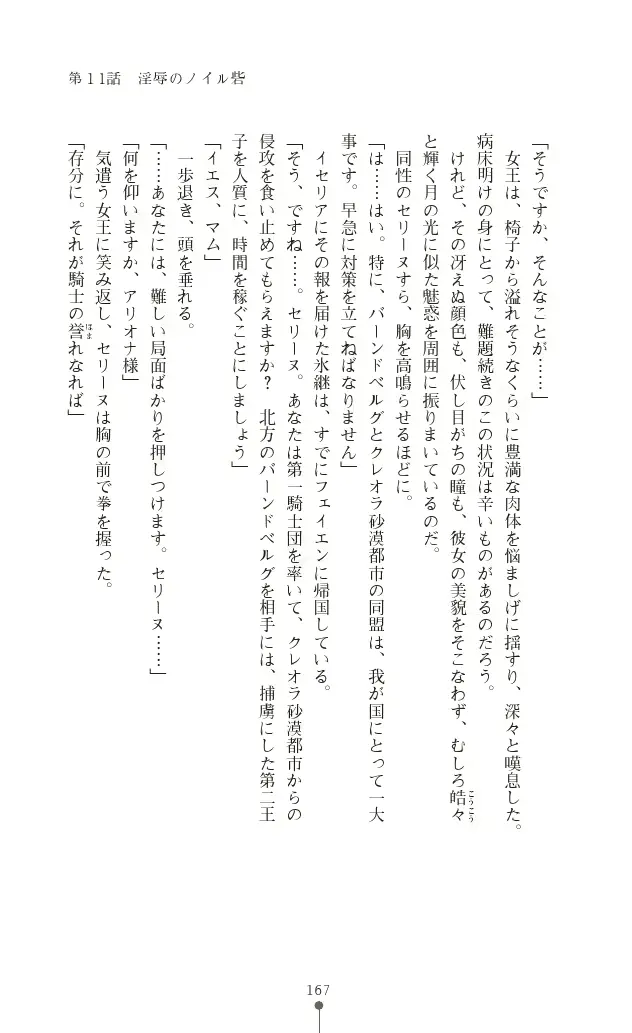 第11話　淫辱のノイル砦
「そうですか、そんなことが……」
　女王は、椅子から溢れそうなくらいに豊満な肉体を悩ましげに揺すり、深々と嘆息した。
病床明けの身にとって、難題続きのこの状況は辛いものがあるのだろう。
　けれど、その冴えぬ顔色も、伏し目がちの瞳も、彼女の美貌をそこなわず、むしろ皓々
こうこう
と輝く月の光に似た魅惑を周囲に振りまいているのだ。
　同性のセリーヌすら、胸を高鳴らせるほどに。
「は……はい。特に、バーンドベルグとクレオラ砂漠都市の同盟は、我が国にとって一大
事です。早急に対策を立てねばなりません」
　イセリアにその報を届けた氷継は、すでにフェイエンに帰国している。
「そう、ですね……。セリーヌ。あなたは第一騎士団を率いて、クレオラ砂漠都市からの
侵攻を食い止めてもらえますか？　北方のバーンドベルグを相手には、捕虜にした第二王
子を人質に、時間を稼ぐことにしましょう」
「イエス、マム」
　一歩退き、頭を垂れる。
「……あなたには、難しい局面ばかりを押しつけます。セリーヌ……」
「何を仰いますか、アリオナ様」
　気遣う女王に笑み返し、セリーヌは胸の前で拳を握った。
「存分に。それが騎士の誉れなれば」
ほま
167